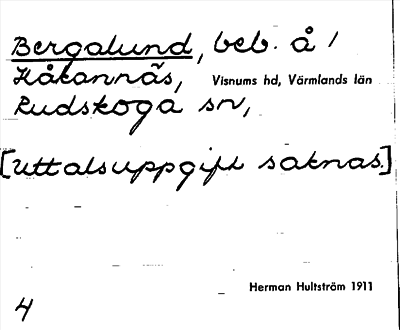 Bergalund, beb. å /
Håkannäs, Visnums hd, Värmlands län
Rudskoga sn,
[Uttalsuppgift saknas.]
Herman Hultström 1911
4